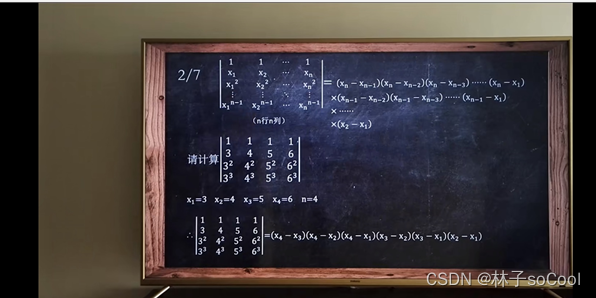 2/7
| 1 1 ⋯ 1 |
| x₁ x₂ ⋯ xₙ |
| x₁² x₂² ⋯ xₙ² |
| ⋮ ⋮ ⋱ ⋮ |
| x₁ⁿ⁻¹ x₂ⁿ⁻¹ ⋯ xₙⁿ⁻¹ |
= (xₙ−xₙ₋₁)(xₙ−xₙ₋₂)(xₙ−xₙ₋₃)⋯⋯(xₙ−x₁)
×(xₙ₋₁−xₙ₋₂)(xₙ₋₁−xₙ₋₃)⋯⋯(xₙ₋₁−x₁)
×⋯⋯
×(x₂−x₁)
(n行n列)
请计算
| 1 1 1 1 |
| 3 4 5 6 |
| 3² 4² 5² 6² |
| 3³ 4³ 5³ 6³ |
x₁=3 x₂=4 x₃=5 x₄=6 n=4
∴
| 1 1 1 1 |
| 3 4 5 6 |
| 3² 4² 5² 6² |
| 3³ 4³ 5³ 6³ |
=(x₄−x₃)(x₄−x₂)(x₄−x₁)(x₃−x₂)(x₃−x₁)(x₂−x₁)
CSDN @林子soCool